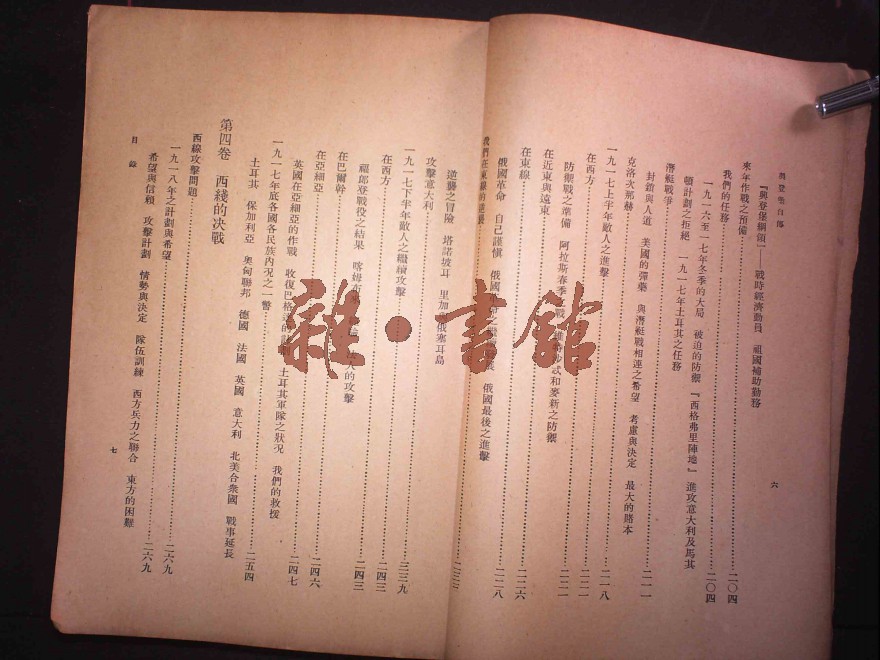 興登堡自傳
六
來年作戰之預備……二〇四
『興登堡綱領』——戰時經濟動員 祖國補助勤務
我們的任務……二〇四
一九一六至一七年冬季的大局 被迫的防禦 『西格弗里陣地』 進攻意大利及馬其
頓計劃之拒絕 一九一七年土耳其之任務
潛艇戰爭……二一一
封鎖與人道 美國的彈藥 與潛艇戰相連之希望 考慮與決定 最大的賭本
克洛次那赫
一九一七上半年敵人之進擊……二一八
在西方……二二一
防禦戰之準備 阿拉斯春季之戰 和麥新之防禦
在近東與遠東……二二一
在東線……二二六
俄國革命 自己謹慎 俄國 俄國最後之進擊
我們在東線的逆襲……二二八
逆襲之冒險 塔諾坡耳 里加 俄塞耳島
攻擊意大利
一九一七下半年敵人之繼續攻擊……三三九
在西方……二四三
福郎登戰役之結果 喀姆 人的攻擊
在巴爾幹……二四三
在亞細亞……二四六
英國在亞細亞的作戰 收復巴格達的 土耳其軍隊之狀況 我們的救援
一九一七年底各國各民族內况之一瞥……二四七
土耳其 保加利亞 奧匈聯邦 德國 法國 英國 意大利 北美合衆國 戰事延長
……二五四
第四卷 西綫的决戰
西線攻擊問題……二六九
一九一八年之計劃與希望……二六九
希望與信賴 攻擊計劃 情勢與決定 隊伍訓練 西方兵力之聯合 東方的困難
目錄
七
雜·書館